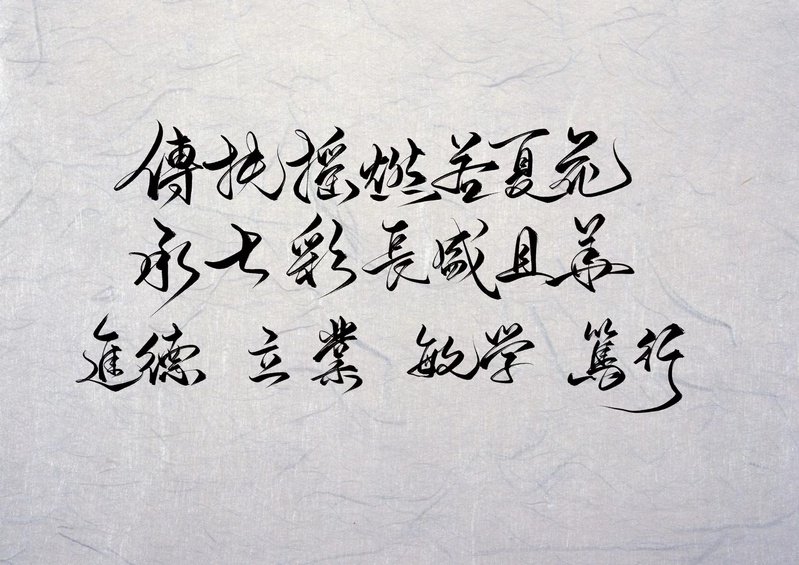 傳扶摇燃若夏花
承七彩長盛且美
進德 立業 敏学 篤行